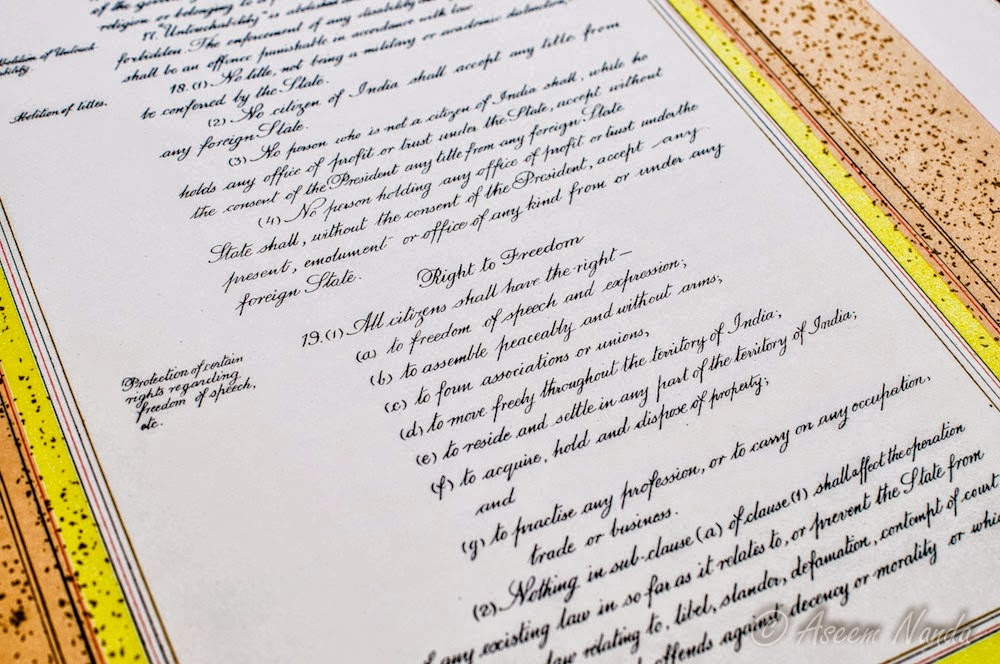 of the
religion or belonging to a
17. "Untouchability" is abolished
forbidden. The enforcement of any disability
shall be an offence punishable in accordance with law.
Abolition of Untouch-
ability.
18. (1) No title, not being a military or academic distinction,
be conferred by the State.
Abolition of titles.
(2) No citizen of India shall accept any title from
any foreign State.
(3) No person who is not a citizen of India shall, while he
holds any office of profit or trust under the State, accept without
the consent of the President any title from any foreign State
(4) No person holding any office of profit or trust under the
State shall, without the consent of the President, accept any
present, emolument or office of any kind from or under any
foreign State.
Right to Freedom
19. (1) All citizens shall have the right—
(a) to freedom of speech and expression;
(b) to assemble peaceably and without arms;
(c) to form associations or unions,
(d) to move freely throughout the territory of India;
(e) to reside and settle in any part of the territory of India;
(f) to acquire, hold and dispose of property;
and
(g) to practise any profession, or to carry on any occupation,
trade or business.
Protection of certain
rights regarding
freedom of speech,
etc.
(2) Nothing in sub-clause (a) of clause (1) shall affect the operation
of any existing law in so far as it relates to, or prevent the State from
law relating to, libel, slander, defamation, contempt of court
offends against decency or morality or
© Aseem Nanda